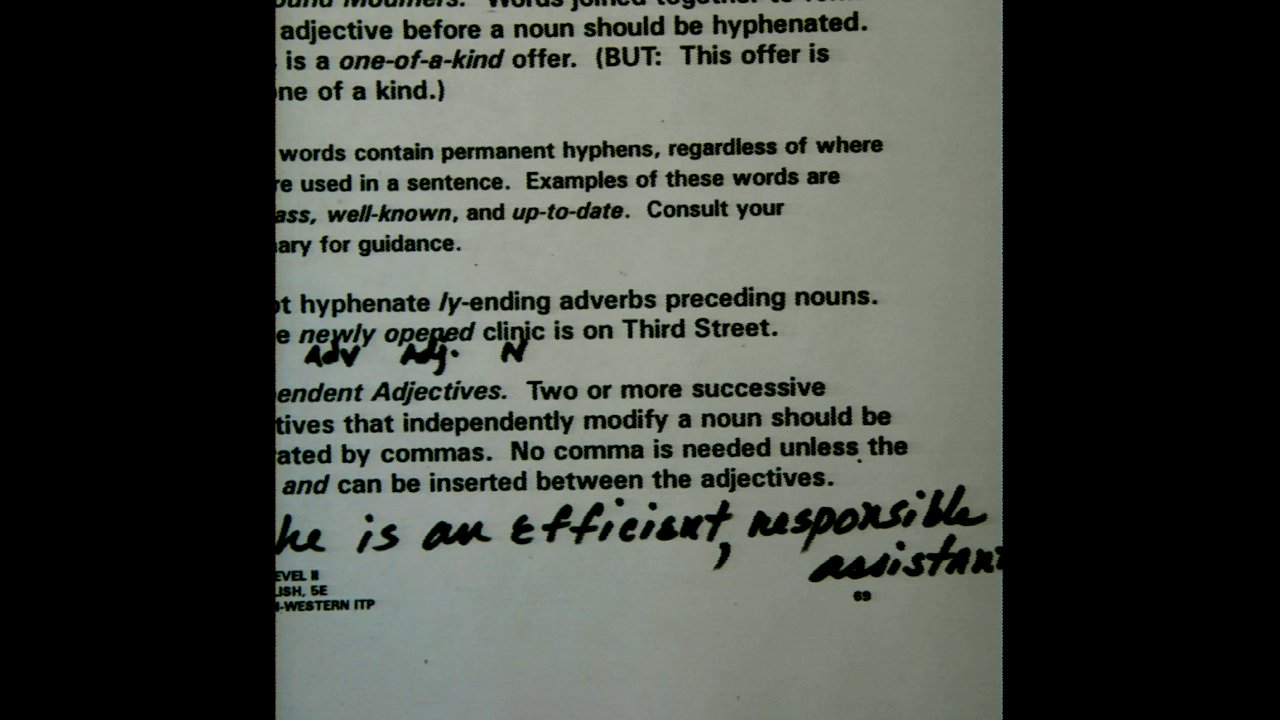 adjective before a noun should be hyphenated.
is a one-of-a-kind offer. (BUT: This offer is
ne of a kind.)
words contain permanent hyphens, regardless of where
re used in a sentence. Examples of these words are
ass, well-known, and up-to-date. Consult your
ary for guidance.
ot hyphenate ly-ending adverbs preceding nouns.
e newly opened clinic is on Third Street.
Adv Adj. N
endent Adjectives. Two or more successive
tives that independently modify a noun should be
ated by commas. No comma is needed unless the
and can be inserted between the adjectives.
he is an efficient, responsible
assistant
EVEL II
ISH, 5E
-WESTERN ITP
69